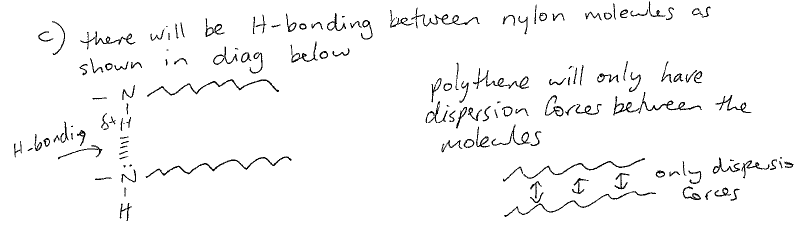 c) there will be H-bonding between nylon molecules as
shown in diag below
– N
H-bondig
δ+ H
– N̈
H
polythene will only have
dispersion forces between the
molecules
only dispersio
forces